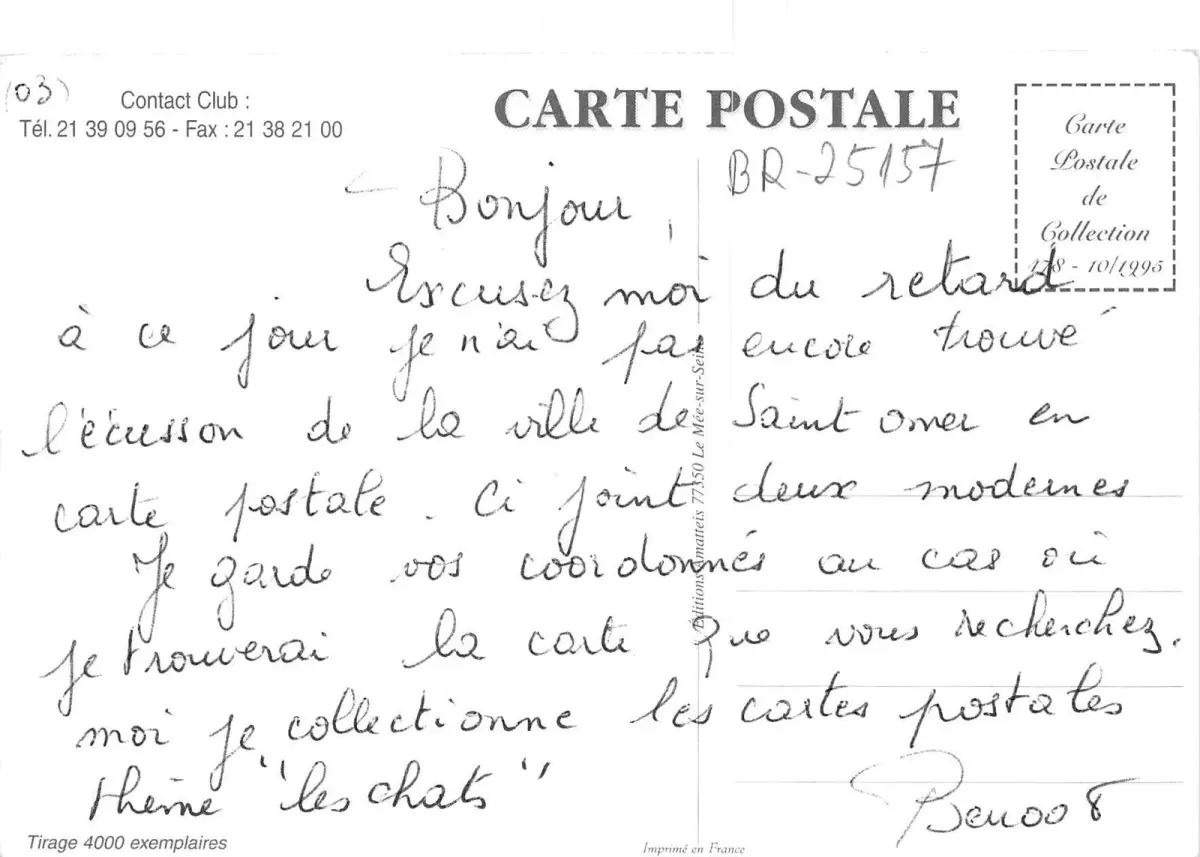 (03)
Contact Club :
Tél. 21 39 09 56 - Fax : 21 38 21 00
CARTE POSTALE
BR-25157
Carte
Postale
de
Collection
178 - 10/1995
Bonjour,
Excusez moi du retard
à ce jour je n'ai pas encore trouvé
l'écusson de la ville de Saint omer en
carte postale. Ci joint deux modernes
Je garde vos coordonnés au cas où
je trouverai la carte que vous recherchez.
moi je collectionne les cartes postales
thème "les chats"
Tirage 4000 exemplaires
Imprimé en France
77350 Le Mée-sur-Seine